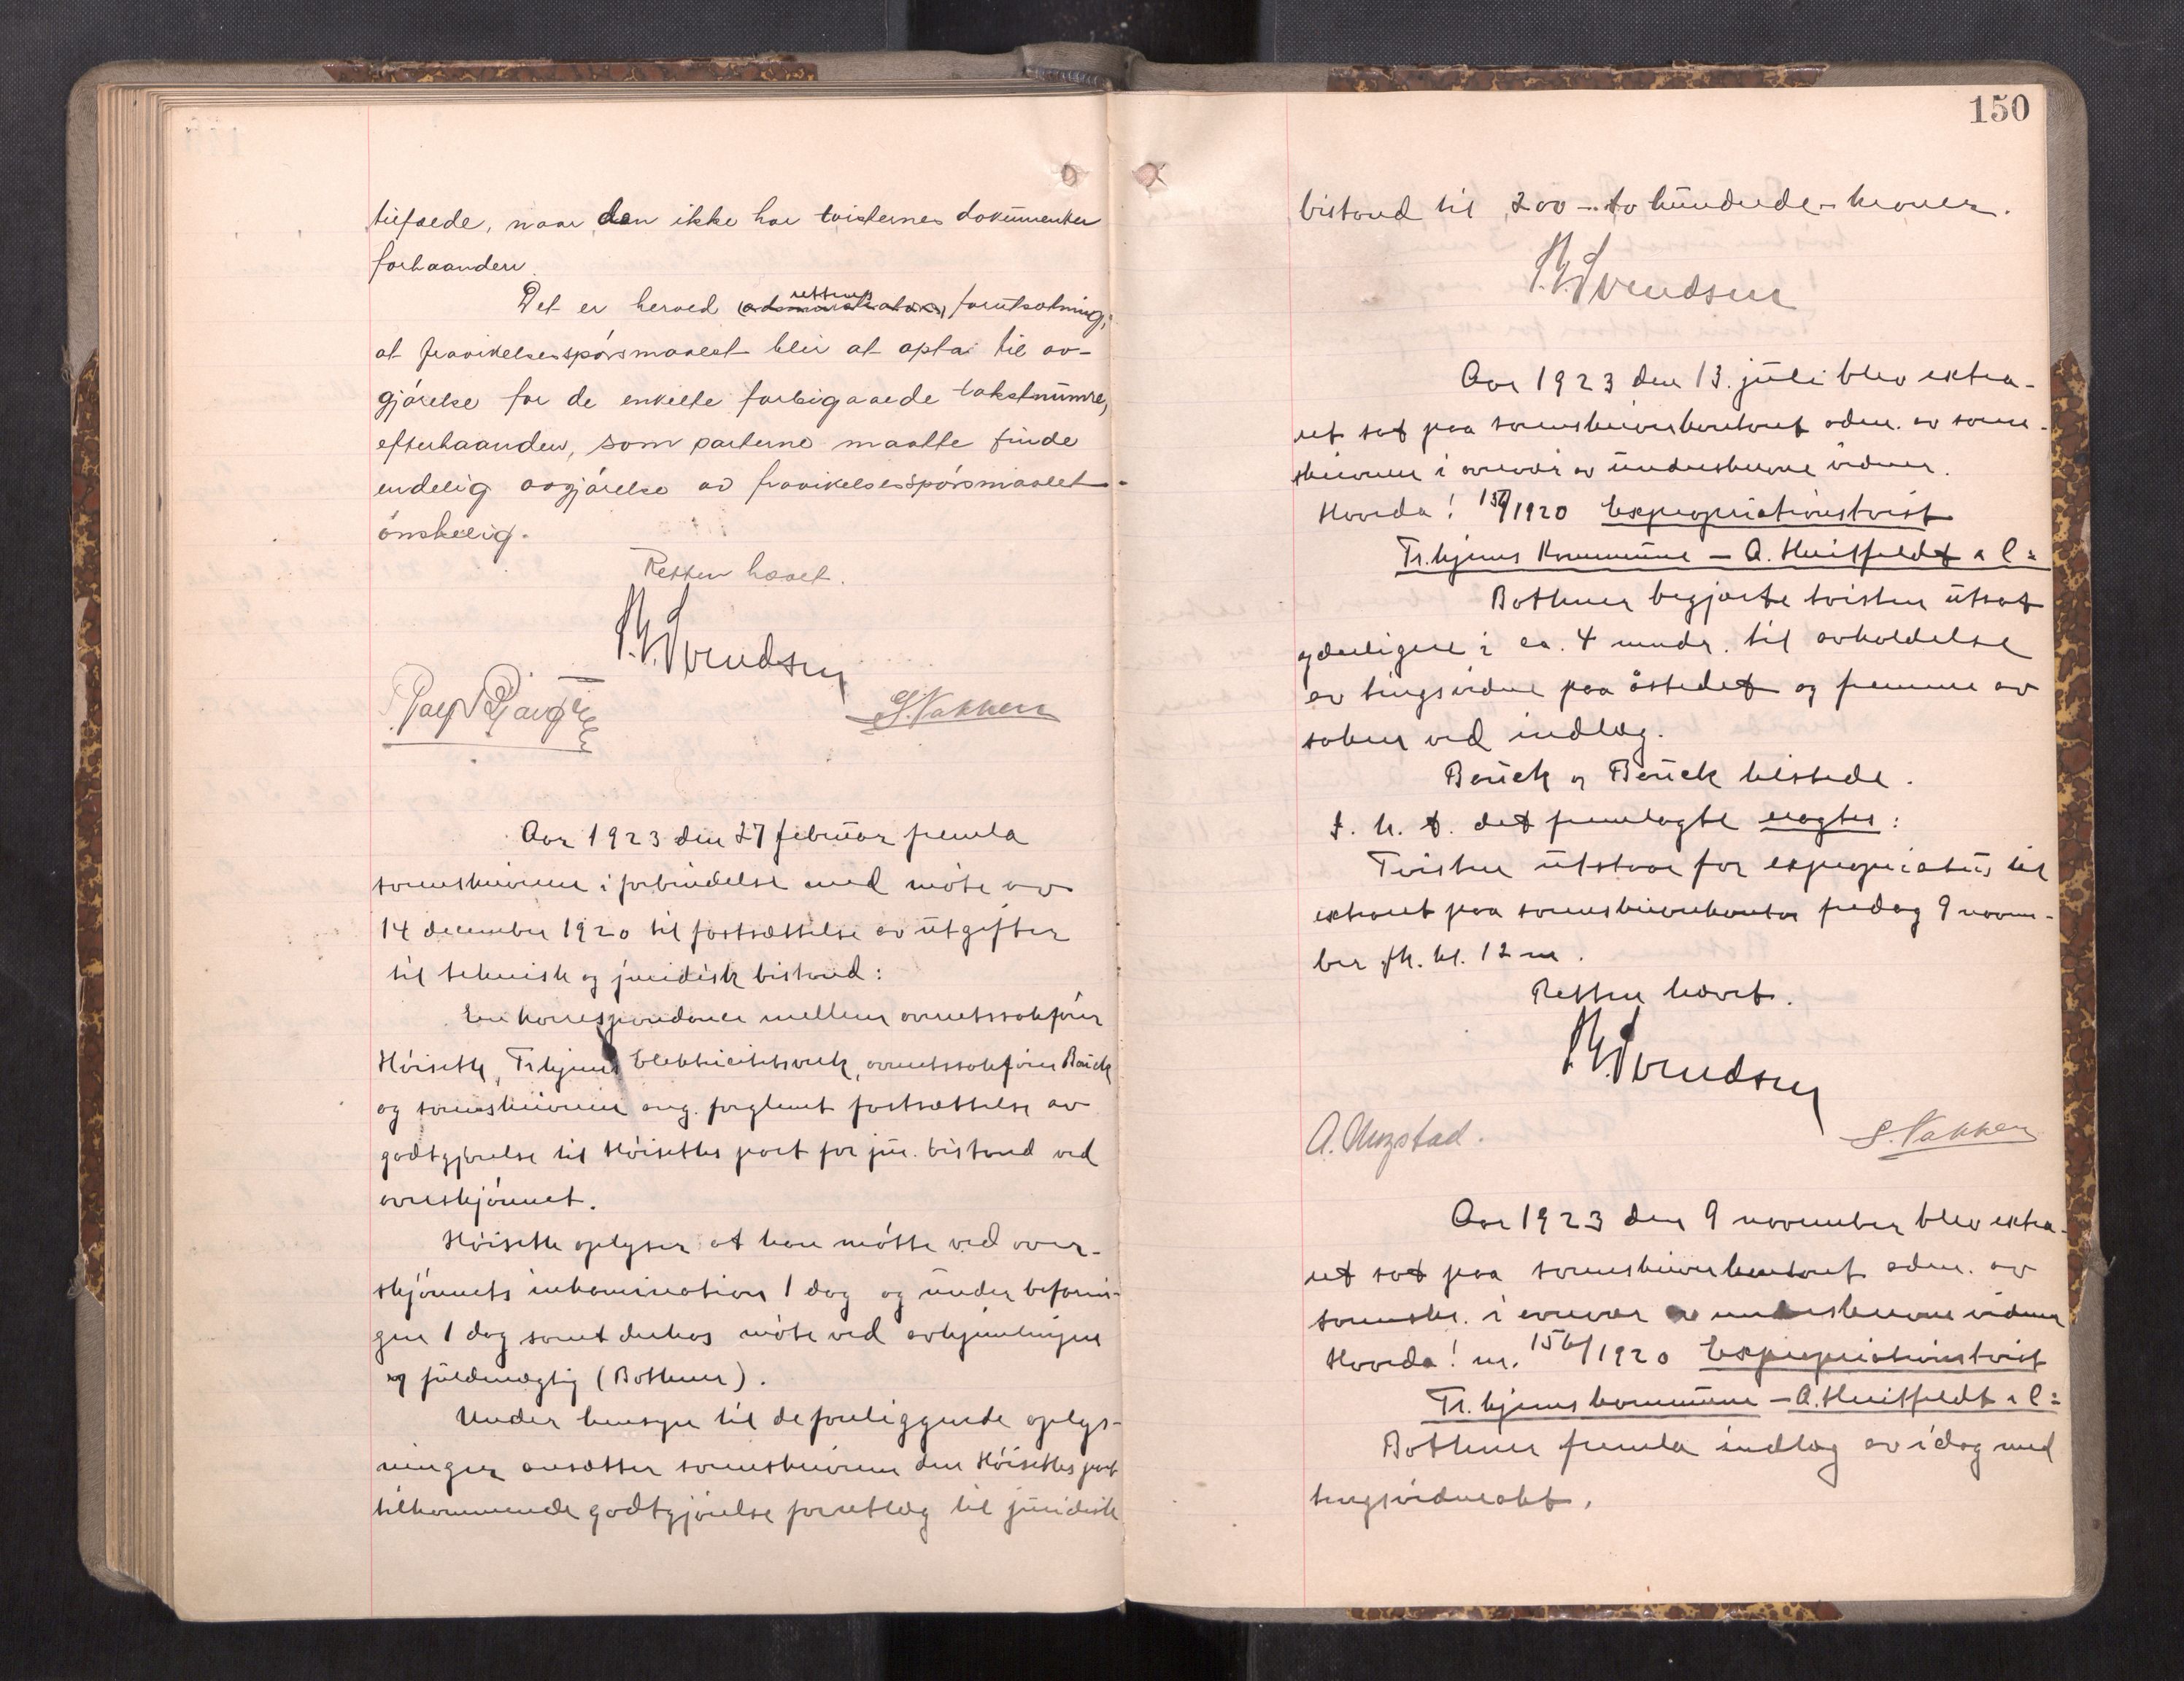 tilfælde, naar den ikke har tvisternes dokumenter
forhaanden.
Det er herved (administrators) rettens forutsætning,
at fravikelsesspörsmaalet blir at opta til av-
gjörelse for de enkelte forbigaaede takstnumre,
efterhaanden, som parterne maatte finde
endelig avgjörelse av fravikelsesspörsmaalet
önskelig.
Retten hævet.
Svendsen
S. Vakken
Aar 1923 den 27 februar fremla
sorenskriveren i forbindelse med möte av
14 december 1920 til fastsættelse av utgifter
til teknisk og juridisk bistand:
En korrespondance mellem overretssakförer
Höiseth, Tr.hjems Elektricitetsverk, overretssakförer Bauck
og sorenskriveren ang. forglemt fastsættelse av
godtgjörelse til Höiseths part for jur. bistand ved
overskjönnet.
Höiseth oplyser at han mötte ved over-
skjönnets inkamination 1 dag og under befarin-
gen 1 dag samt derhos möte ved avhjemlingen
ved fuldmægtig (Bothner).
Under hensyn til de foreliggende oplys-
ninger ansætter sorenskriveren den Höiseths part
tilkommende godtgjörelse for utlæg til juridisk
150
bistand til 200 - to hundrede - kroner.
Svendsen
Aar 1923 den 13. juli blev extra-
ret sat paa sorenskriverkontoret adm. av soren-
skriveren i overvær av underskrevne vidner.
Hvorda! 156/1920 Expropriationstvist
Tr.hjems Kommune - A. Huitfeldt & C=
Bothner begjærte tvisten utsat
yderligere i ca. 4 mndr. til avholdelse
av tingsvidne paa åstedet og fremme av
saken ved indlæg.
Bauck og Bauck tilstede.
I. h. t. det fremlagte eragtes:
Tvisten utstaar for expropriatus til
extraret paa sorenskriverkontor fredag 9 novem-
ber fk. kl. 12 m.
Retten hævet.
Svendsen
A. Ungstad.
S. Vakken
Aar 1923 den 9 november blev extra-
ret sat paa sorenskriverkontoret adm. av
sorenskr. i overvær av underskrevne vidner
Hvorda! nr. 156/1920 Expropriationstvist
Tr.hjems kommune - A. Huitfeldt & C=
Bothner fremla indlæg av idag med
tingsvidneakt.